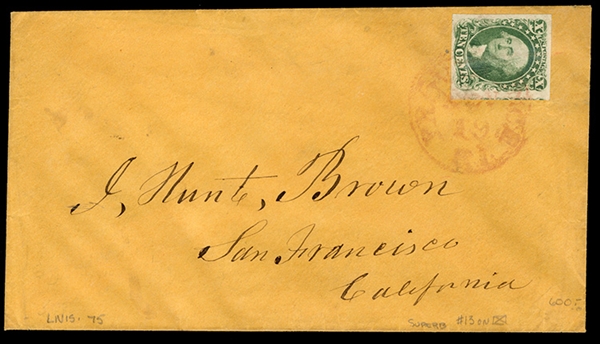 X X
TEN CENTS
R.I.
J. Hunt, Brown
San Francisco
California
LIV15. 75
SUPERB #13 ON
600